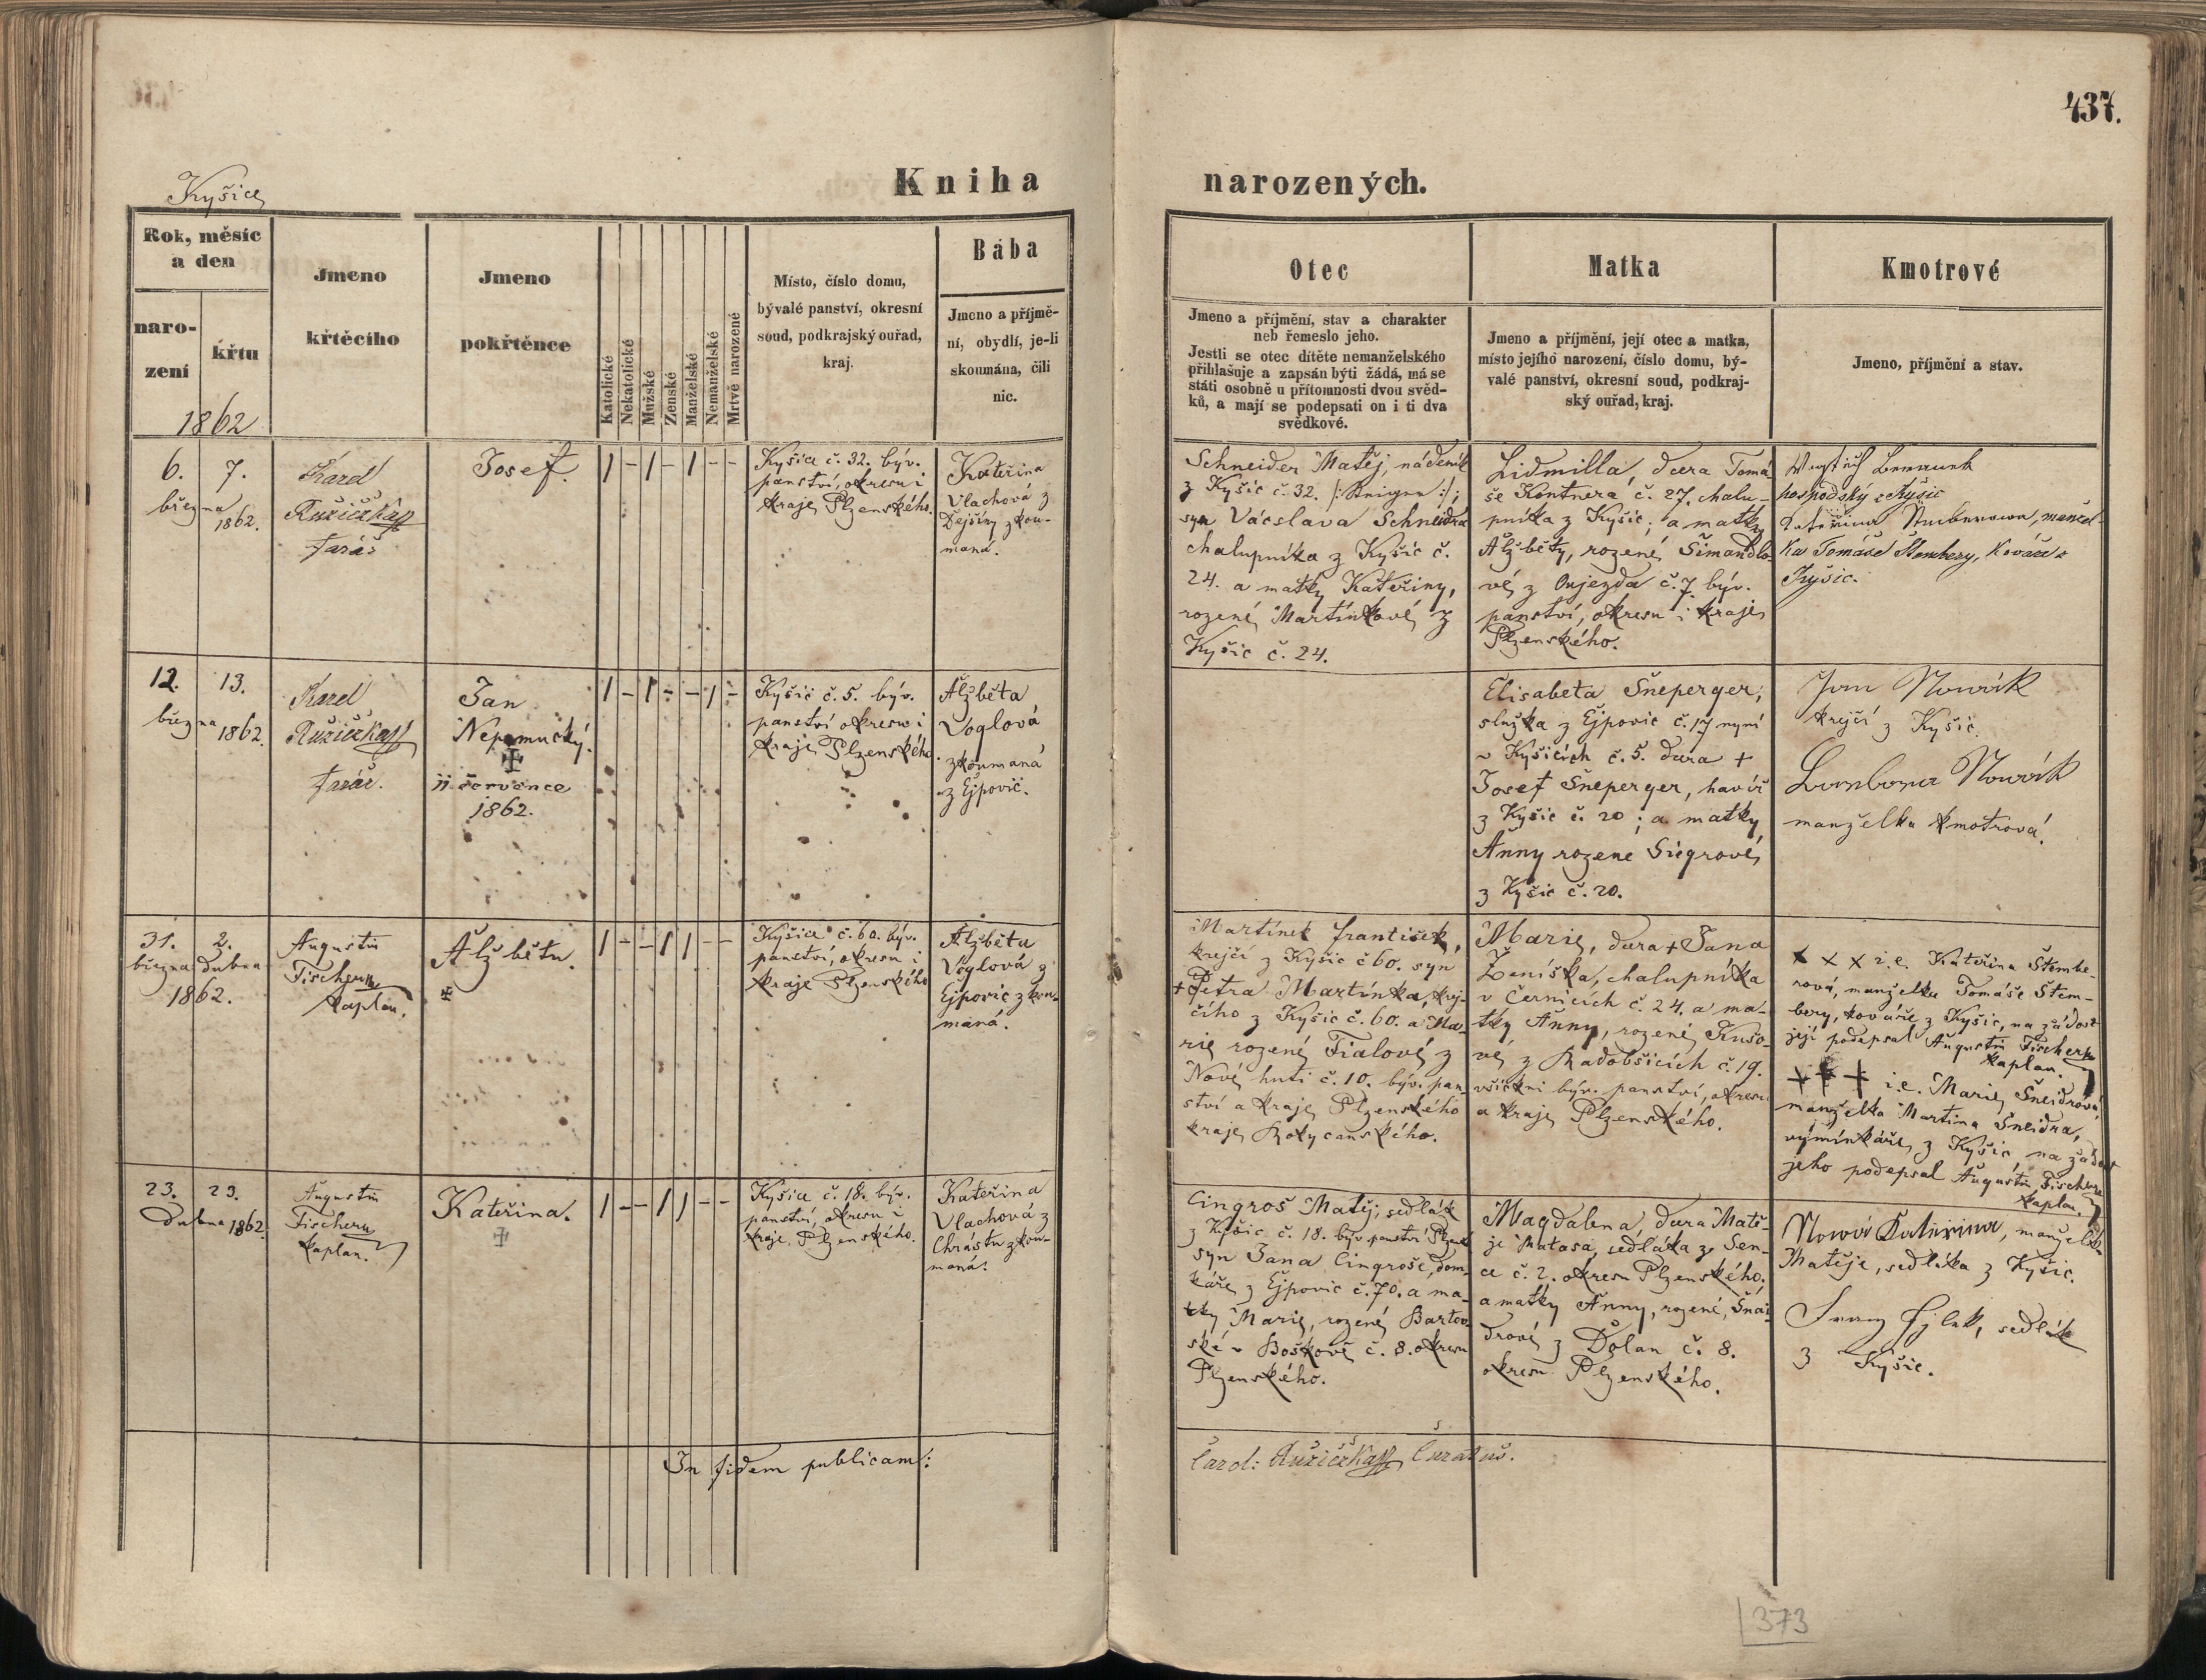 437.
Kyšice
Kniha narozených.
Rok, měsíc
a den
naro-
zení
křtu
1862
Jmeno
křtěcího
Jmeno
pokřtěnce
Katolické
Nekatolické
Mužské
Ženské
Manželské
Nemanželské
Mrtvě narozené
Místo, číslo domu,
bývalé panství, okresní
soud, podkrajský ouřad,
kraj.
Bába
Jmeno a příjmě-
ní, obydlí, je-li
skoumána, čili
nic.
Otec
Jmeno a příjmění, stav a charakter
neb řemeslo jeho.
Jestli se otec dítěte nemanželského
přihlašuje a zapsán býti žádá, má se
státi osobně u přítomnosti dvou svěd-
ků, a mají se podepsati on i ti dva
svědkové.
Matka
Jmeno a příjmění, její otec a matka,
místo jejího narození, číslo domu, bý-
valé panství, okresní soud, podkraj-
ský ouřad, kraj.
Kmotrové
Jmeno, příjmění a stav.
6. 7.
března
1862.
Karel
Růžička
farář
Josef.
1 - 1 - 1 - -
Kyšice č. 32. býv.
panství, okresu i
kraje Plzenského.
Kateřina
Vlachová z
Dejšíny zkou-
maná.
Schneider Matěj, nádeník
z Kyšic č. 32.
syn Václava Schneidra
chalupníka z Kyšic č.
24. a matky Kateřiny,
rozené Martínkové z
Kyšic č. 24.
Lidmilla, dcera Tomá-
še Kontnera č. 27. chalu-
pníka z Kyšic; a matky
Alžběty, rozené Šimandlo-
vé z Oujezda č. 7. býv.
panství, okresu i kraje
Plzenského.
hospodský z Kyšic
manžel-
ka Tomáše Štembery, kováře z
Kyšic.
12. 13.
března
1862.
Karel
Růžička
farář.
Jan
Nepomucký.
11. července
1862.
1 - 1 - - 1 -
Kyšic č. 5. býv.
panství okresu i
kraje Plzenského
Alžběta
Voglová
zkoumaná
z Ejpovic.
Elisabeta Šneperger,
služka z Ejpovic č. 17 nyní
v Kyšicích č. 5. dcera +
Josef Šneperger, havíř
z Kyšic č. 20; a matky
Anny rozene Siegrové,
z Kyšic č. 20.
Jan Nowák
krejčí z Kyšic.
Barbora Nowák
manželka kmotrová.
31. 2.
března dubna
1862.
Augustin
Fischer
kaplan.
Alžběta.
1 - - 1 1 - -
Kyšice č. 60. býv.
panství, okresu i
kraje Plzenského
Alžběta
Voglová z
Ejpovic zkou-
maná.
Martínek František,
krejčí z Kyšic č 60. syn
+ Petra Martínka, krej-
čího z Kyšic č. 60. a Ma-
rie rozené Fialové z
Nové huti č. 10. býv. pan-
ství a kraje Plzenského
kraje Rokycanského.
Marie, dcera + Jana
Ženíška, chalupníka
v Černicích č. 24. a ma-
tky Anny, rozené
vé z Radobšicích č. 19.
všickni býv. panství, okresu
a kraje Plzenského.
x x x i.e. Kateřina Štembe-
rová, manželka Tomáše Štem-
bery, kováře z Kyšic, na žádost
její podepsal Augustin Fischer
kaplan.
+ + + i.e. Marie Šneidrová,
manželka Martina Šneidra,
výminkáře z Kyšic, na žádost
jeho podepsal Augustin Fischer
kaplan.
23. 23.
Dubna 1862.
Augustin
Fischer
kaplan.
Kateřina.
1 - - 1 1 - -
Kyšice č. 18. býv.
panství, okresu i
kraje Plzenského.
Kateřina
Vlachová z
Chrástu zkou-
maná.
Cingroš Matěj, sedlák
z Kyšic č. 18. býv. panství
syn Jana Cingroše, dom-
káře z Ejpovic č. 70. a ma-
tky Marie, rozené Bartov-
ské v Boškově č. 8. okresu
Plzenského.
Magdalena, dcera Matě-
je Matasa, sedláka ze Sen-
ce č. 2. okresu Plzenského.
a matky Anny, rozené, Šnai-
drové z Dolan č. 8.
okresu Plzenského.
Nowá Kateřina, manželka
Matěje, sedláka z Kyšic.
sedlák
z Kyšic.
In fidem publicam:
Carol: Růžička Curatus.
373